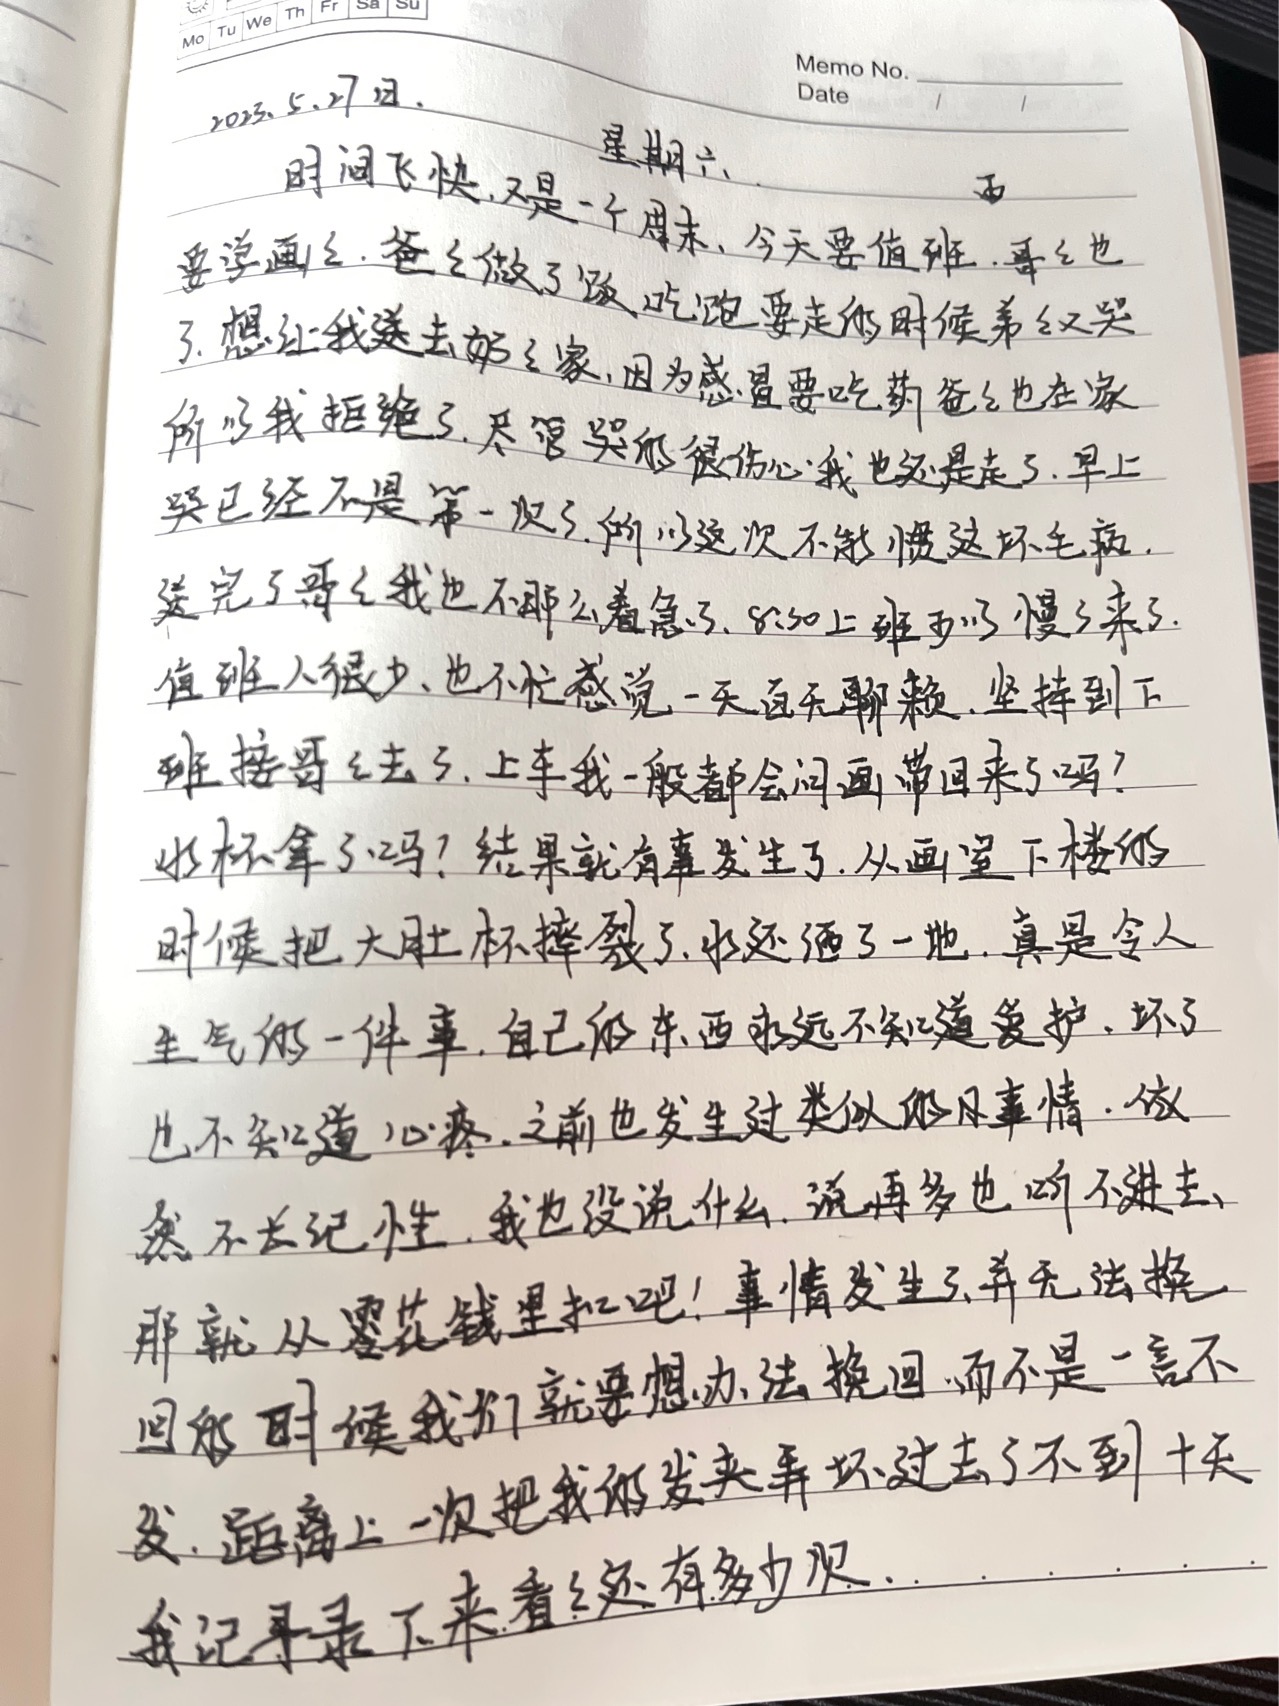 Mo Tu We Th Fr Sa Su
Memo No.
Date / /
2023.5.27日. 星期六. 雨
时间飞快,又是一个周末、今天要值班.哥々也
要学画々.爸々做了饭,吃跑要走的时候弟々又哭
了.想让我送去奶々家,因为感冒要吃药爸々也在家
所以我拒绝了.尽管哭的很伤心我也还是走了.早上
哭已经不是第一次了.所以这次不能惯这坏毛病.
送完了哥々我也不那么着急了、8:30上班可以慢々来了.
值班人很少、也不忙感觉一天百无聊赖.坚持到下
班接哥々去了.上车我一般都会问画带回来了吗?
水杯拿了吗?结果就有事发生了.从画室下楼的
时候把大肚杯摔裂了.水还洒了一地.真是令人
生气的一件事.自己的东西永远不知道爱护.坏了
也不知道心疼.之前也发生过类似的事情.依
然不长记性.我也没说什么.说再多也听不进去、
那就从零花钱里扣吧!事情发生了并无法挽
回的时候我们就要想办法挽回.而不是一言不
发.距离上一次把我的发夹弄坏过去了不到十天
我记录下来看々还有多少次......